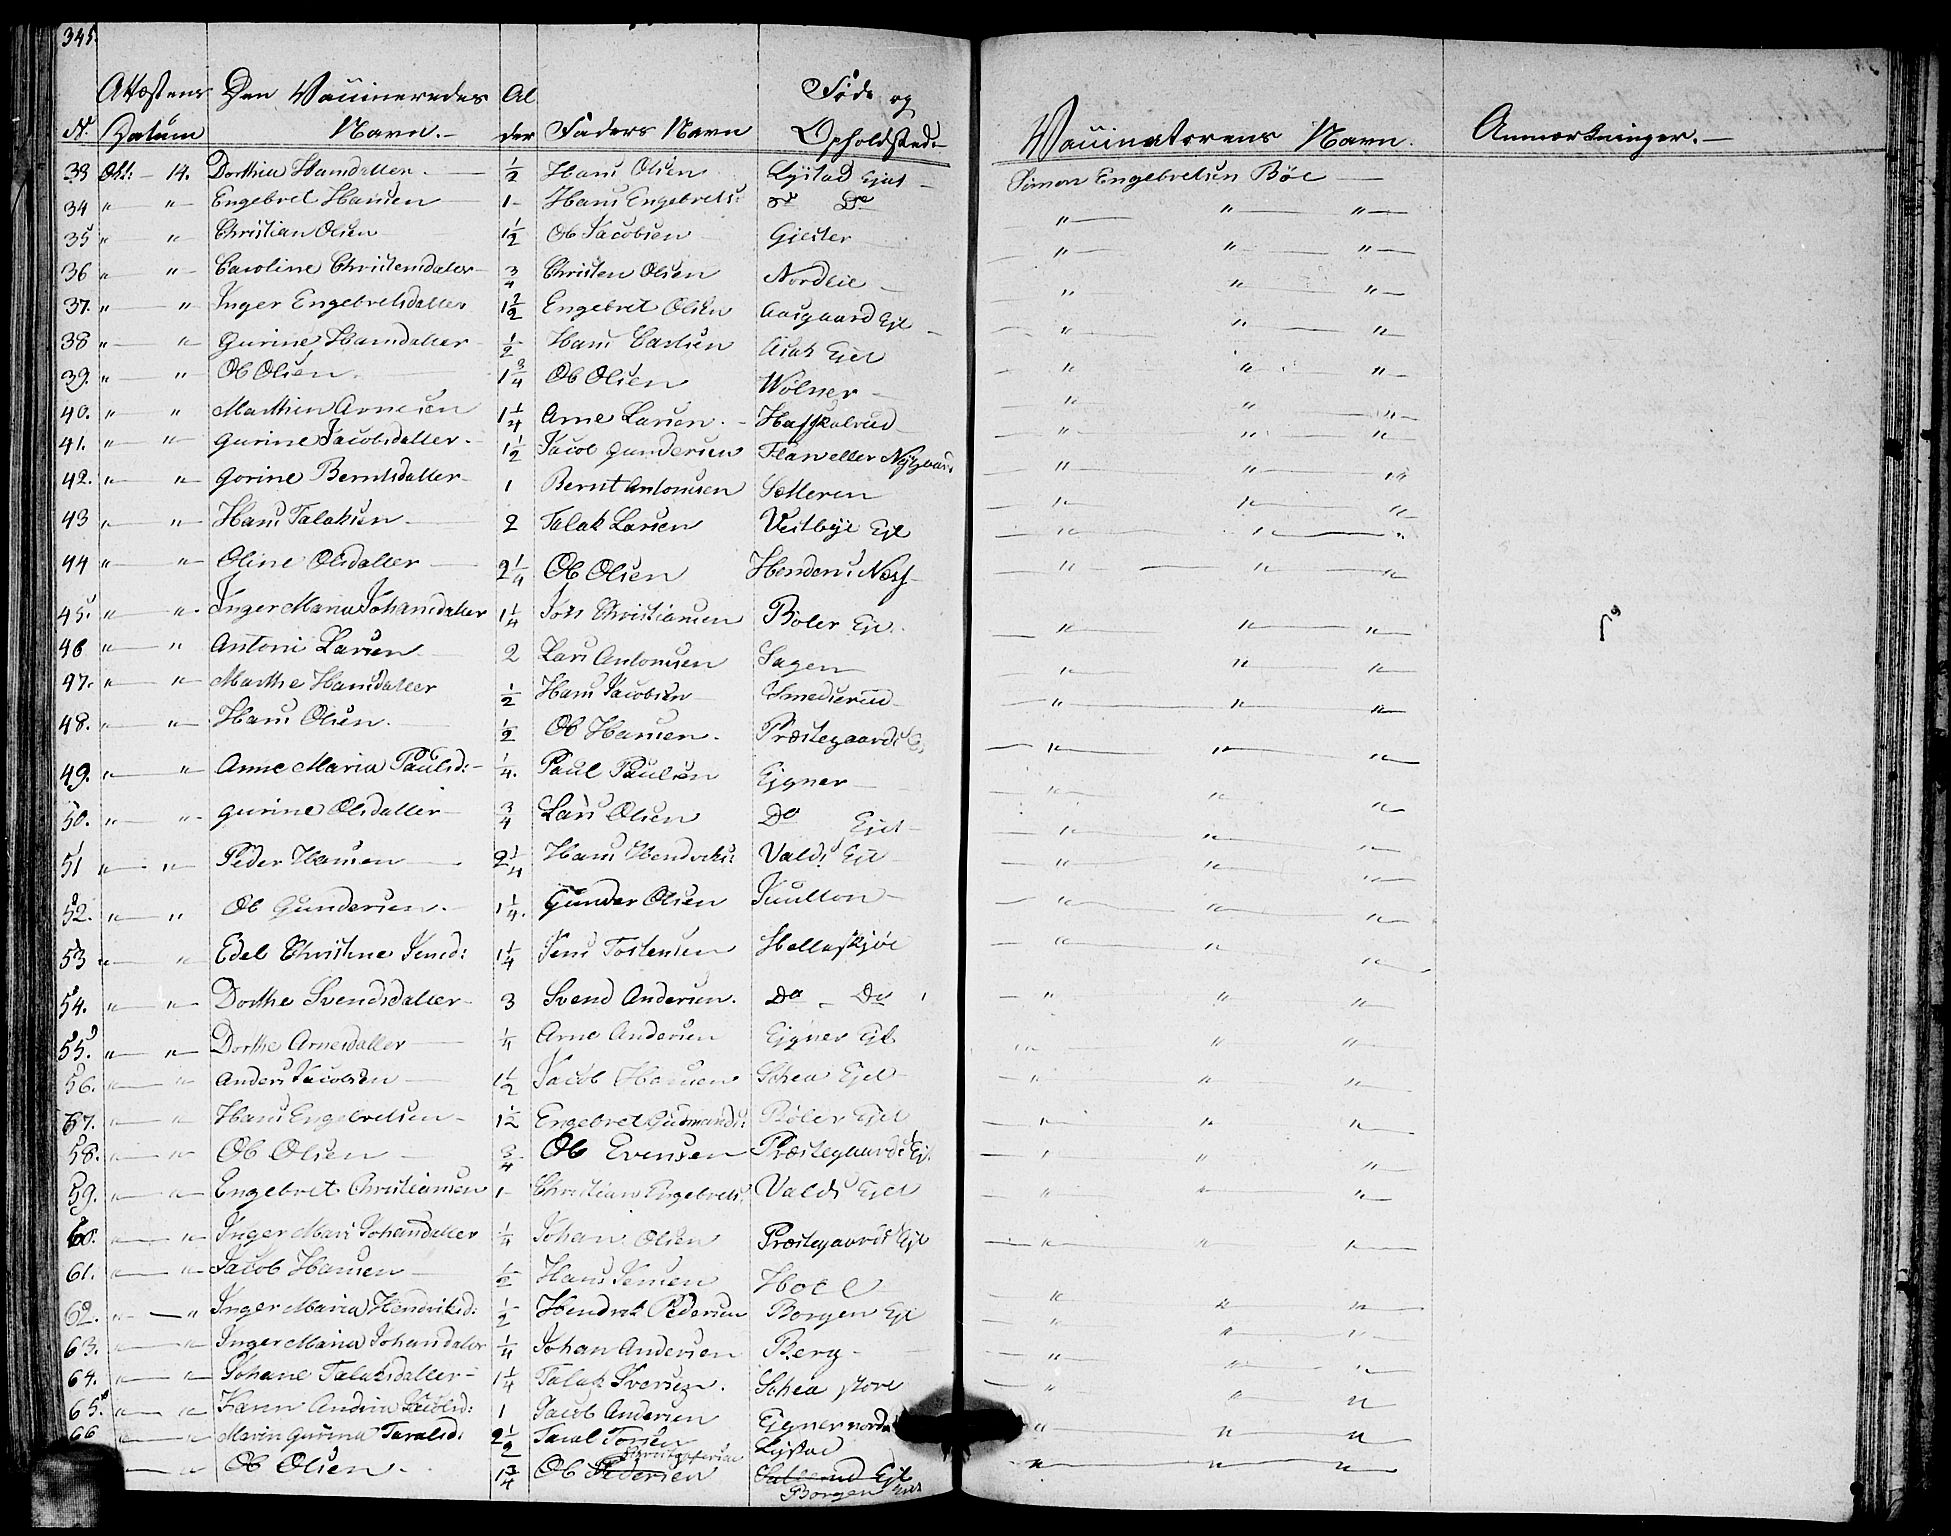 345.
N. Attestens Datum Den Vaccineredes Navn. Alder Faders Navn Føde og Opholdsted. Vaccinatorens Navn. Anmærkninger.
33 Okt: 14. Dorthea Hansdatter ½ Hans Olsen Lystad Ejet Simon Engebretsen Böe
34 " " Engebret Hansen 1 Hans Engebrets: do Do " " "
35 " " Christian Olsen 1½ Ole Jacobsen Gjester " " "
36 " " Caroline Christensdatter ¾ Christen Olsen Nordlie " " "
37. " " Inger Engebretsdatter 1½ Engebret Olsen Aasgaard Ejt " " "
38 " " Gurine Hansdatter ½ Hans Carlsen Asak Ejet " " "
39. " " Ole Olsen 1¾ Ole Olsen Wölner " " "
40. " " Marthin Arnesen 1¼ Arne Larsen Haßkolrud " " "
41. " " Gurine Jacobsdatter 1½ Jacob Gundersen eller " " "
42. " " Gorine Berntsdatter 1 Bernt Antonsen Sætteren " " "
43 " " Hans Talaksen 2 Talak Larsen Vestbye Ejt " " "
44 " " Oline Olsdatter 2¼ Ole Olsen " " "
45. " " Inger Maria Johansdatter 1¼ Johs Christiansen Böler Ejt. " " "
46 " " Antoni Larsen 2 Lars Antonsen Sagen " " "
47. " " Marthe Hansdatter ½ Hans Jacobsen Smedsrud " " "
48. " " Hans Olsen ½ Ole Hansen Præstegaards " " "
49. " " Anne Maria Paulsd: ¼ Paul Paulsen Ejgner " " "
50. " " Gurine Olsdatter ¾ Lars Olsen Do Ejet " " "
51 " " Peder Hansen 2¼ Hans Hendriks: Valds Ejt " " "
52. " " Ole Gundersen 1¼ Gunder Olsen " " "
53 " " Edel Christine Jensd: 1¼ Jens Tostensen Helleskjöe " " "
54. " " Dorthe Svendsdatter 3 Svend Andersen Do Do " " "
55. " " Dorthe Arnesdatter ¼ Arne Andersen Ejgner Ejt. " " "
56. " " Anders Jacobsen 1½ Jacob Hansen Schea Ejet " " "
57. " " Hans Engebretsen 1½ Engebret Gudmunds: Böler Ejet " " "
58. " " Ole Olsen ¾ Ole Evensen Præstegaards Ejt. " " "
59. " " Engebret Christiansen 1 Christian Engebrets: Valds Ejet " " "
60. " " Inger Mari Johansdatter ¼ Johan Olsen Præstegaards Ejt " " "
61. " " Jacob Hansen ½ Hans Jensen Hoel " " "
62. " " Inger Maria Hendriksd: ½ Hendrik Pedersen Borgen Ejt " " "
63. " " Inger Maria Johansdatter ¼ Johan Andersen Berg " " "
64. " " Johane Talaksdatter 1¼ Talak Iversen Schea store " " "
65. " " Karen Andrea Jacobsd: 1 Jacob Andersen Ejgner nordre " " "
66 " " Maren Gurina Taralsd: 2½ Taral Lystad " " "
" " Ole Olsen 1¾ Ole Pedersen Christophersen Ejt Borgen " " "